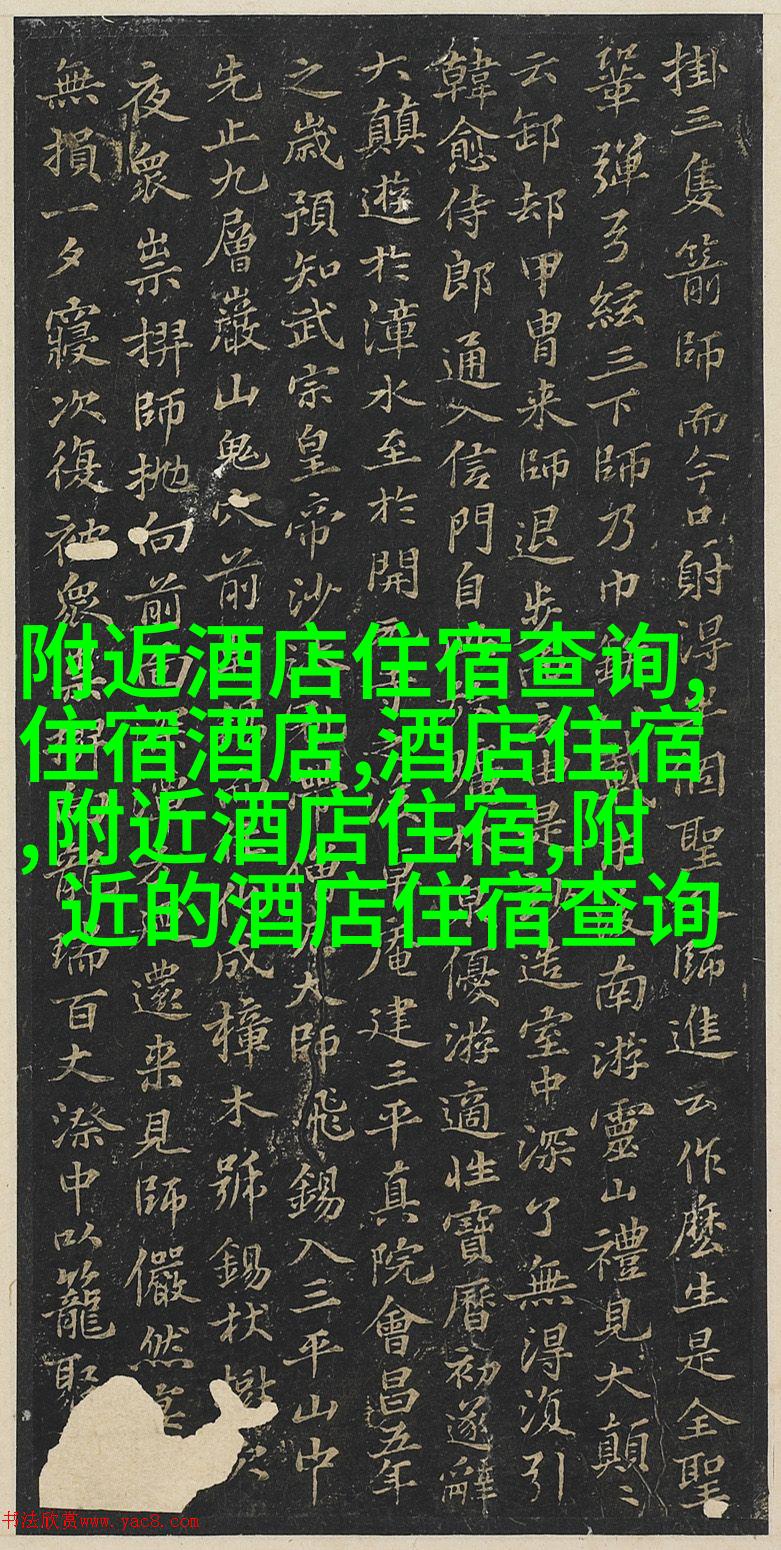 掛三隻箭師而今只射淂個聖師進云作麽生是全聖
鞏彈弓絃三下師乃巾南游靈山禮見大顛〻
云卸却甲冑来師退步是造室中深了無得湏引
韓愈侍郎通入信門自優游適性寶曆初遂辭
大顛遊於漳水至於開庵建三平真院會昌五年
之歲預知武宗皇帝沙大師飛錫入三平山中
先止九層巖山鬼穴前成樟木號錫杖
夜衆祟擇師抛向前面還来見師儼然
無損一夕寢次復被衆瑞百丈漈中以籠聚
附近酒店住宿查询,
住宿酒店,酒店住宿
,附近酒店住宿,附
近的酒店住宿查询
书法欣赏www.yac8.com